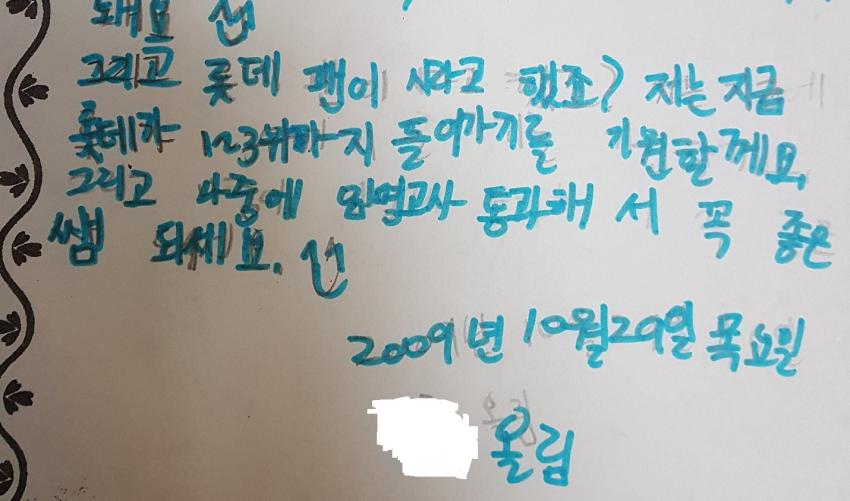 돼요
그리고 롯데 팬이 시라고 했죠? 저는 지금
롯데가 1~3위까지 들어가기를 기원할께요.
그리고 나중에 임명고사 통과해 서 꼭 좋은
쌤 되세요.
2009년 10월29일 목요일
올림